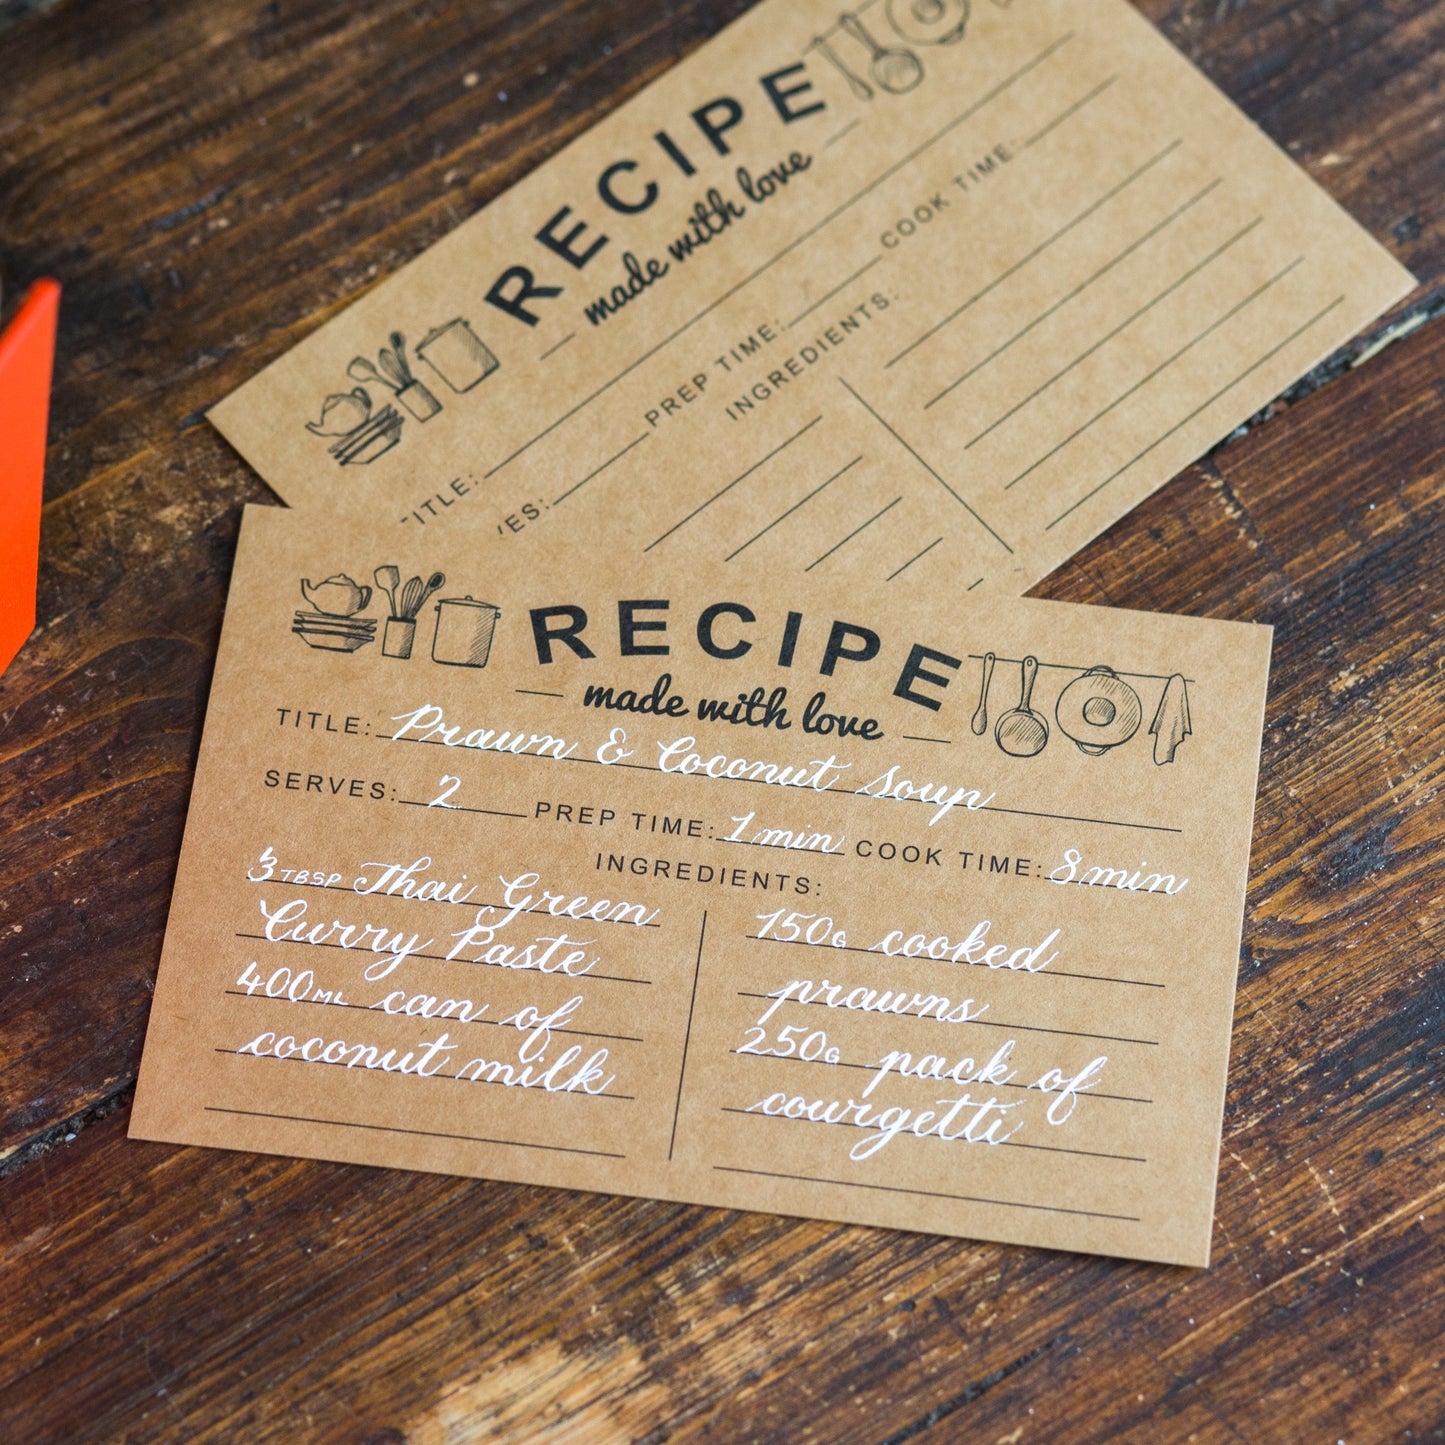 RECIPE
made with love
TITLE:
ES: PREP TIME: COOK TIME:
INGREDIENTS:
RECIPE
made with love
TITLE: Prawn & Coconut Soup
SERVES: 2 PREP TIME: 1 min COOK TIME: 8 min
INGREDIENTS:
3 TBSP Thai Green
Curry Paste
400ML can of
coconut milk
150G cooked
prawns
250G pack of
courgetti